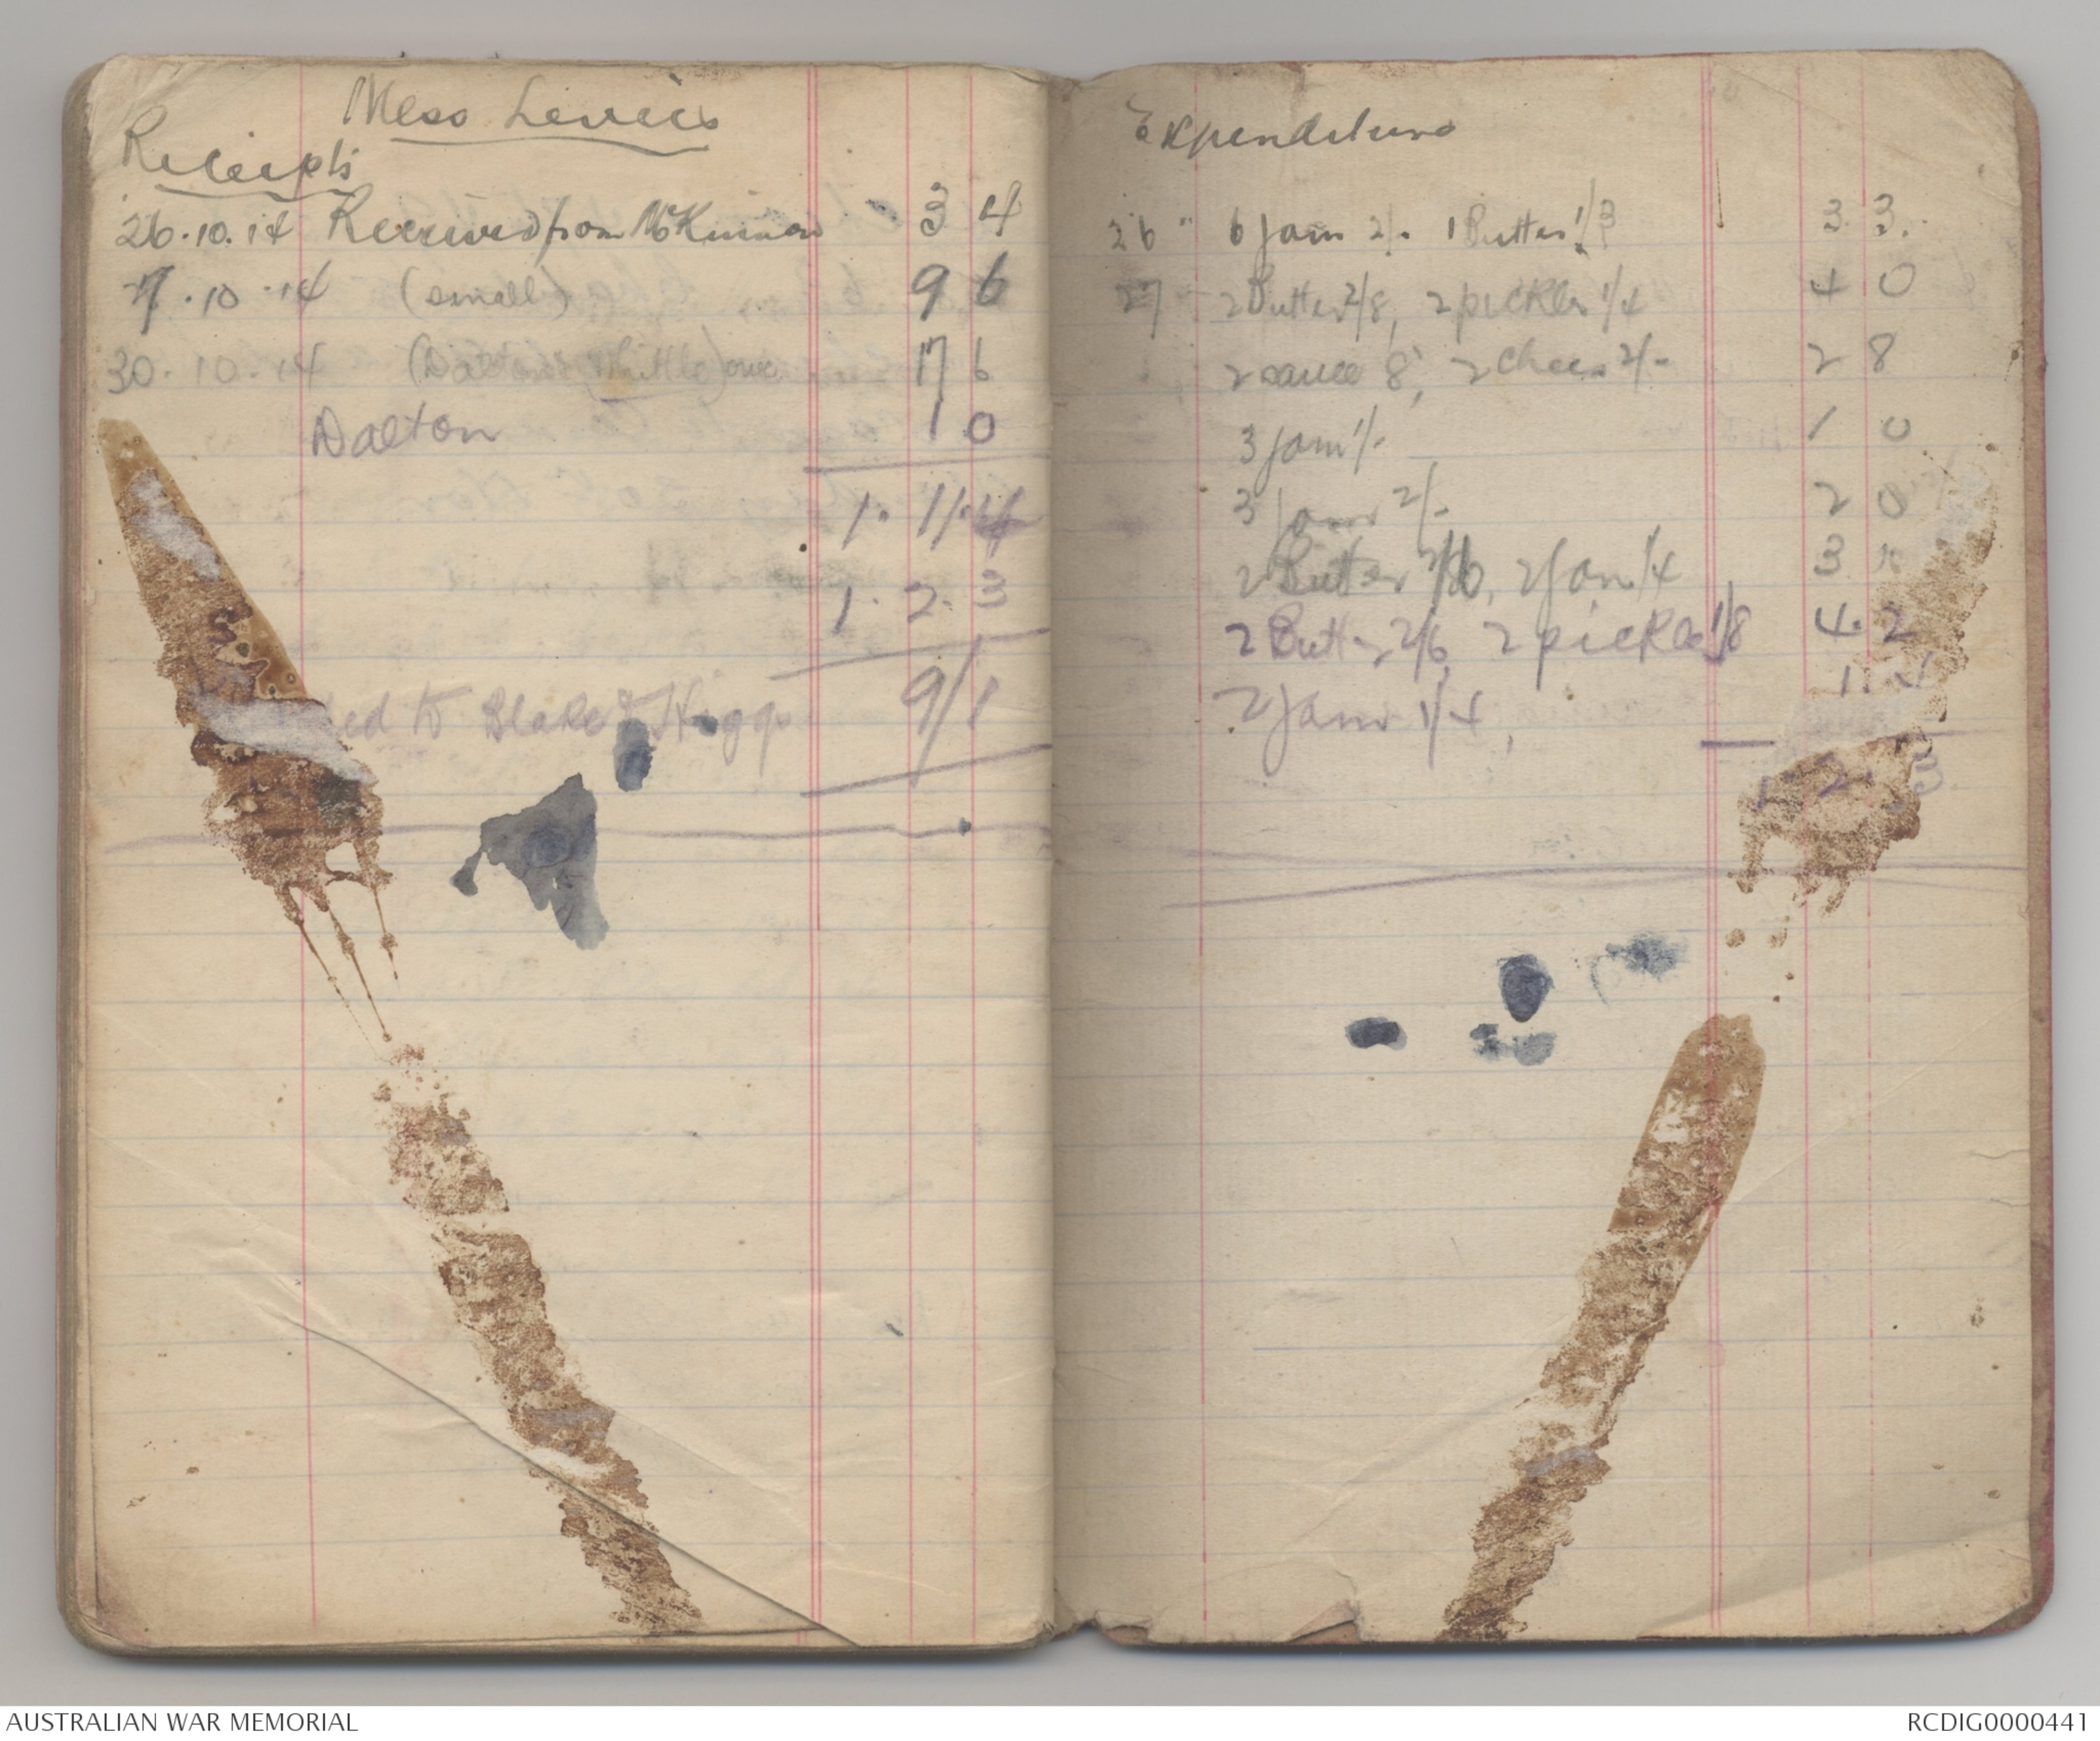 Mess Levies
Receipts
26.10.14 Received from McKinnon 3 4
27.10.14 (small) 9 6
30.10.14 (Dalton, Whittle) owe 17 6
Dalton 1 0
1. 11. 4
1. 2. 3
ed to Blake & Higgs 9/1
Expenditure
26 " 6 Jam 2/- 1 Butter 1/3 3. 3.
27 2 Butter 2/8, 2 pickles 1/4 4 0
2 sauce 8, 2 Chees 2/- 2 8
3 Jam 1/- 1 0
3 Jam 2/- 2 0
2 Butter, 2 Jam 1/4 3
2 Butter 2/6, 2 pickles 1/8 4. 2
2 Jam 1/4,
1 2. 3
AUSTRALIAN WAR MEMORIAL
RCDIG0000441